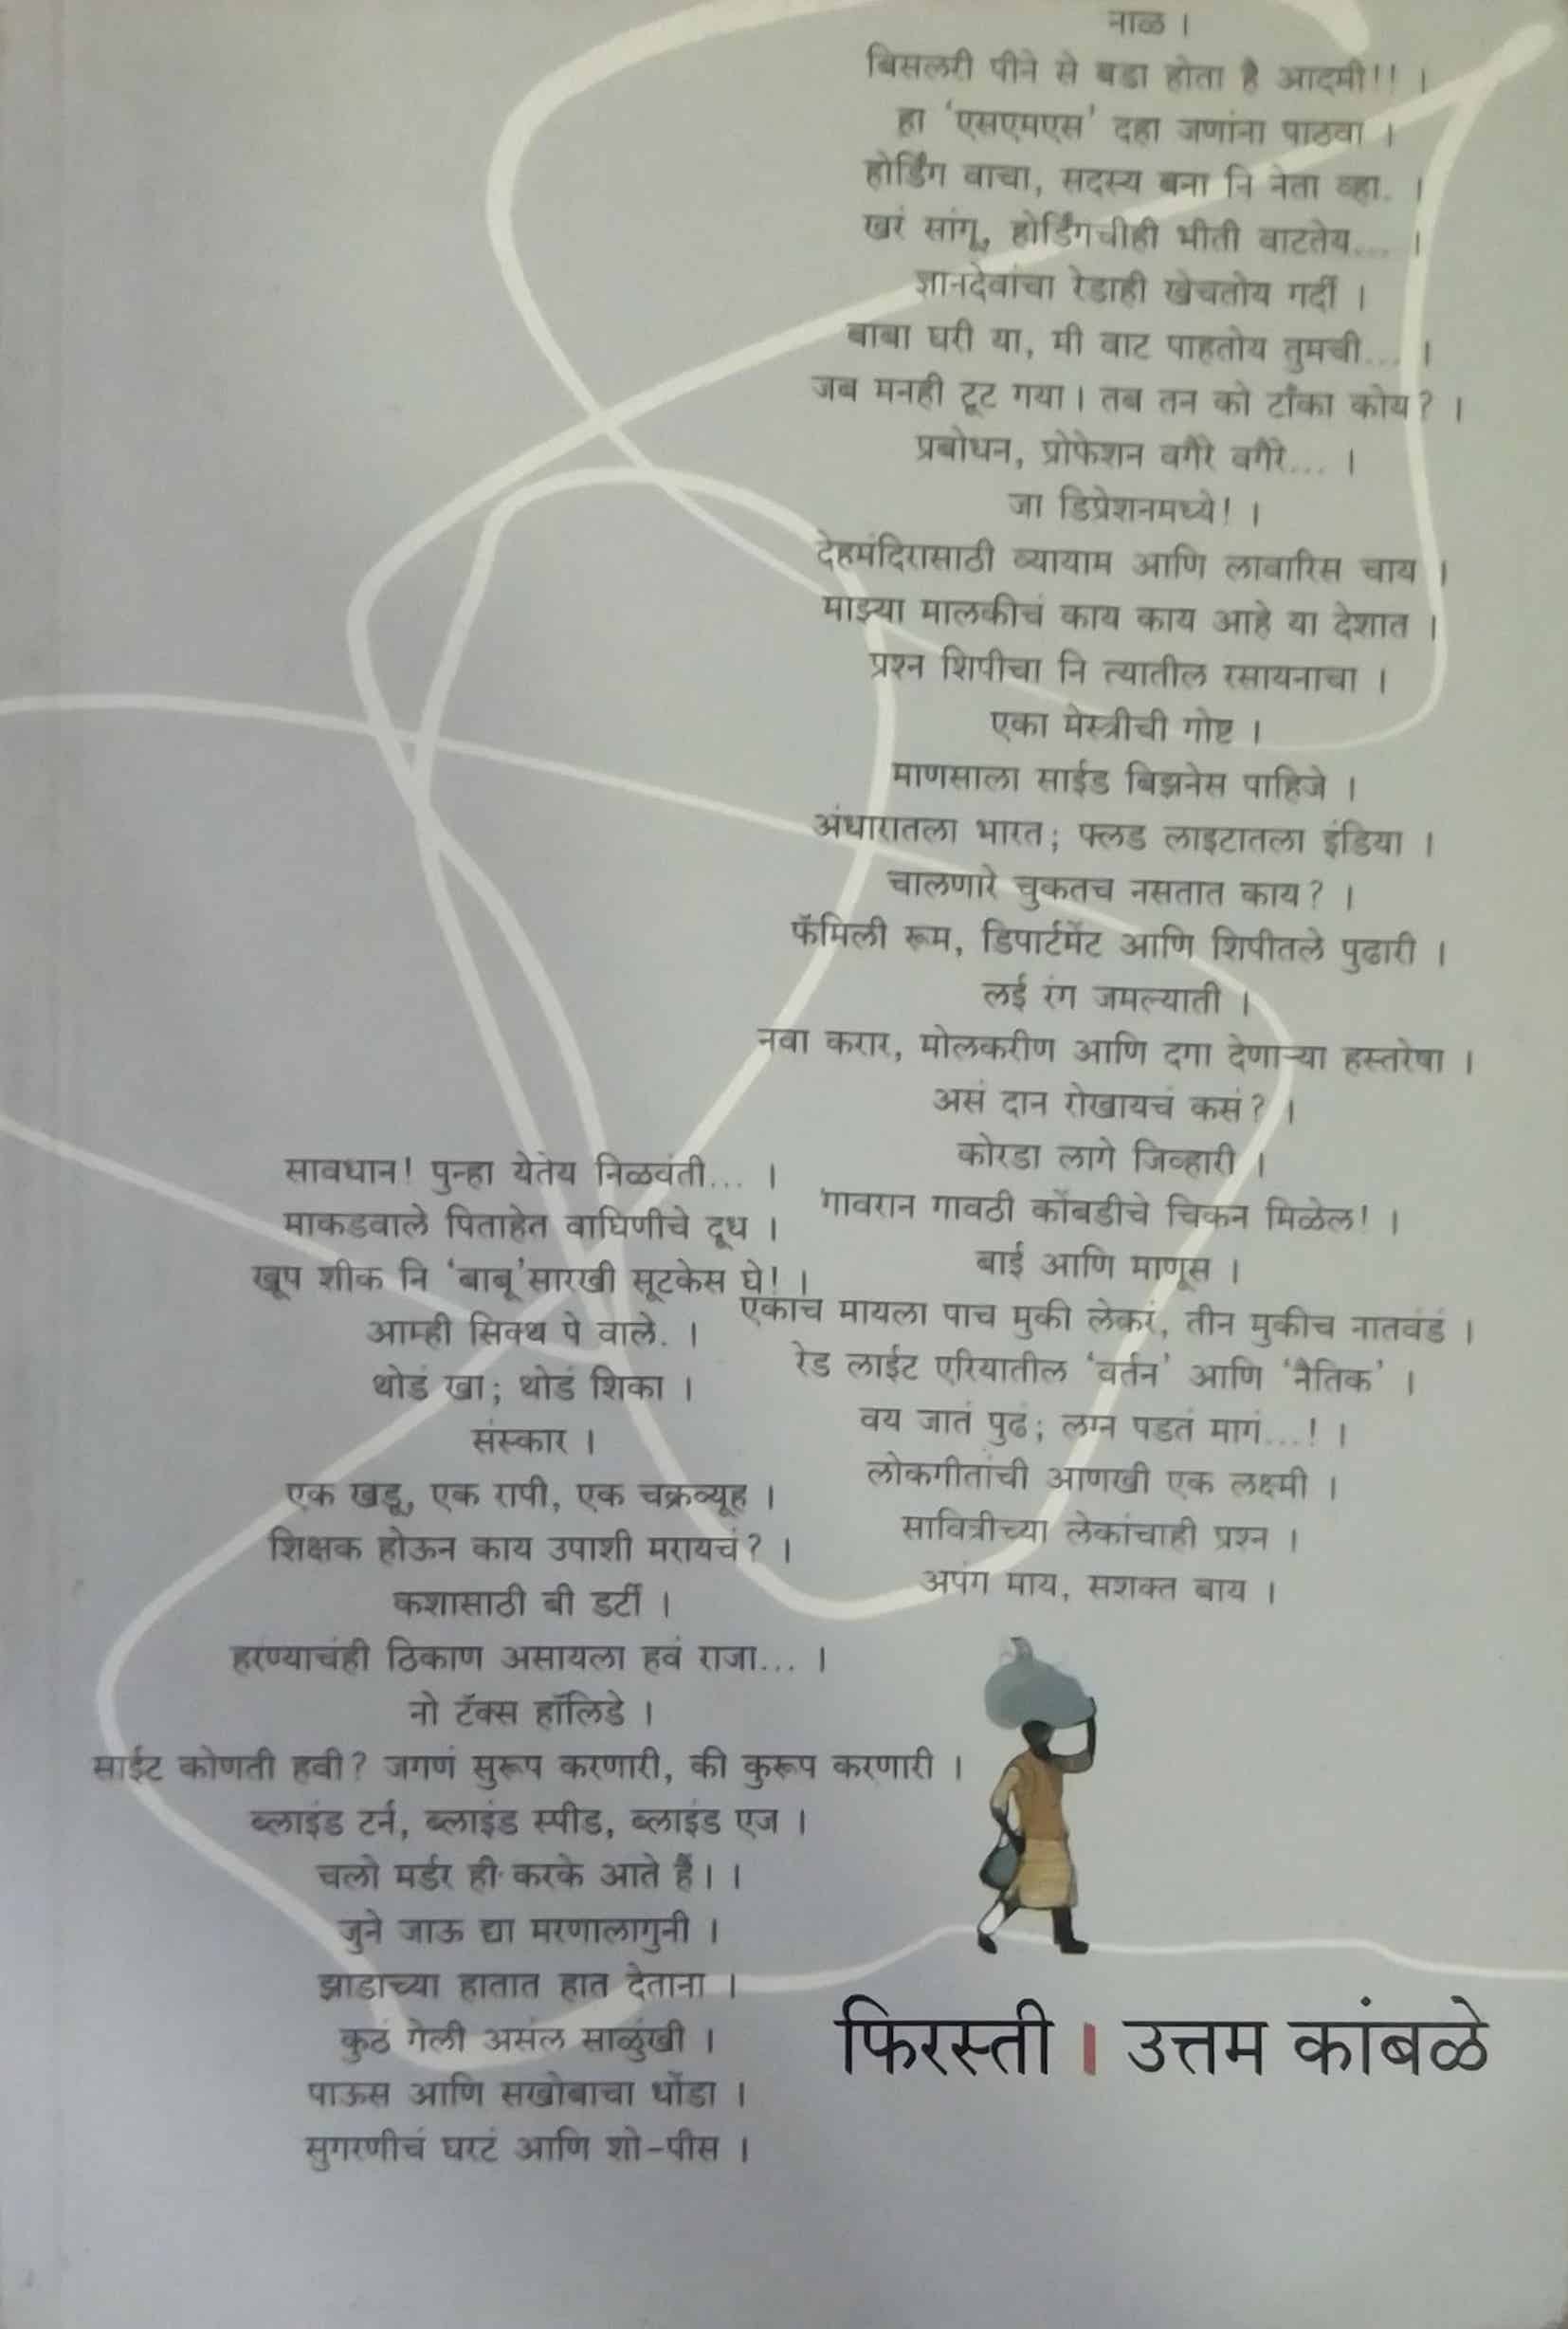 नाळ ।
बिसलरी पीने से बडा होता है आदमी!! ।
हा ‘एसएमएस’ दहा जणांना पाठवा ।
होर्डिंग वाचा, सदस्य बना नि नेता व्हा. ।
खरं सांगू, होर्डिंगचीही भीती वाटतेय... ।
ज्ञानदेवांचा रेडाही खेचतोय गर्दी ।
बाबा घरी या, मी वाट पाहतोय तुमची... ।
जब मनही टूट गया। तब तन को टाँका कोय? ।
प्रबोधन, प्रोफेशन वगैरे वगैरे... ।
जा डिप्रेशनमध्ये! ।
देहमंदिरासाठी व्यायाम आणि लावारिस चाय ।
माझ्या मालकीचं काय काय आहे या देशात ।
प्रश्न शिपीचा नि त्यातील रसायनाचा ।
एका मेस्त्रीची गोष्ट ।
माणसाला साईड बिझनेस पाहिजे ।
अंधारातला भारत; फ्लड लाइटातला इंडिया ।
चालणारे चुकतच नसतात काय? ।
फॅमिली रूम, डिपार्टमेंट आणि शिपीतले पुढारी ।
लई रंग जमल्याती ।
नवा करार, मोलकरीण आणि दगा देणाऱ्या हस्तरेषा ।
असं दान रोखायचं कसं? ।
कोरडा लागे जिव्हारी ।
गावरान गावठी कोंबडीचे चिकन मिळेल! ।
बाई आणि माणूस ।
एकाच मायला पाच मुकी लेकरं, तीन मुकीच नातवंडं ।
रेड लाईट एरियातील ‘वर्तन’ आणि ‘नैतिक’ ।
वय जातं पुढं; लग्न पडतं मागं...! ।
लोकगीतांची आणखी एक लक्ष्मी ।
सावित्रीच्या लेकांचाही प्रश्न ।
अपंग माय, सशक्त बाय ।
सावधान! पुन्हा येतेय निळवंती... ।
माकडवाले पिताहेत वाघिणीचे दूध ।
खूप शीक नि ‘बाबू’सारखी सूटकेस घे! ।
आम्ही सिक्थ पे वाले. ।
थोडं खा; थोडं शिका ।
संस्कार ।
एक खडू, एक रापी, एक चक्रव्यूह ।
शिक्षक होऊन काय उपाशी मरायचं? ।
कशासाठी बी डर्टी ।
हरण्याचंही ठिकाण असायला हवं राजा... ।
नो टॅक्स हॉलिडे ।
साईट कोणती हवी? जगणं सुरूप करणारी, की कुरूप करणारी ।
ब्लाइंड टर्न, ब्लाइंड स्पीड, ब्लाइंड एज ।
चलो मर्डर ही करके आते हैं। ।
जुने जाऊ द्या मरणालागुनी ।
झाडाच्या हातात हात देताना ।
कुठं गेली असंल साळुंखी ।
पाऊस आणि सखोबाचा धोंडा ।
सुगरणीचं घरटं आणि शो-पीस ।
फिरस्ती । उत्तम कांबळे